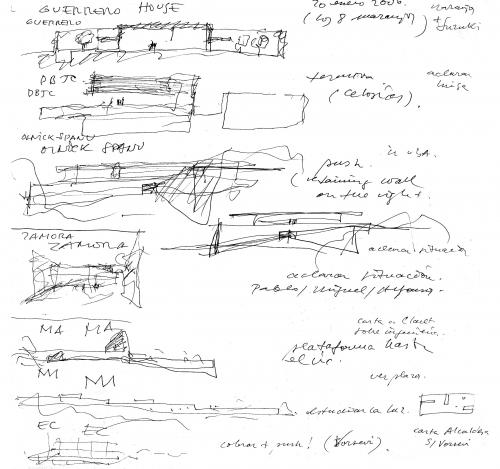 GUERRERO HOUSE
GUERRERO
20 enero 2006.
(los 8 naranjos)
naranja
+ Suzuki
DBJC
DBJC
(Celosías).
aclarar
luisa
OLNICK SPANU
OLNICK SPANU
push.
in USA.
(retaining wall
on the right.
ZAMORA
ZAMORA
aclarar situación
aclarar situación.
Pablo/Miguel/Alfonso.
MA MA
carta a Claret
sobre ingeniería.
plataforma hasta
el
MI MI
ver plazo.
estudiar la luz.
EC
EC
cobrar + push! (Vorsevi)
carta Alcaldesa
S/ Vorsevi